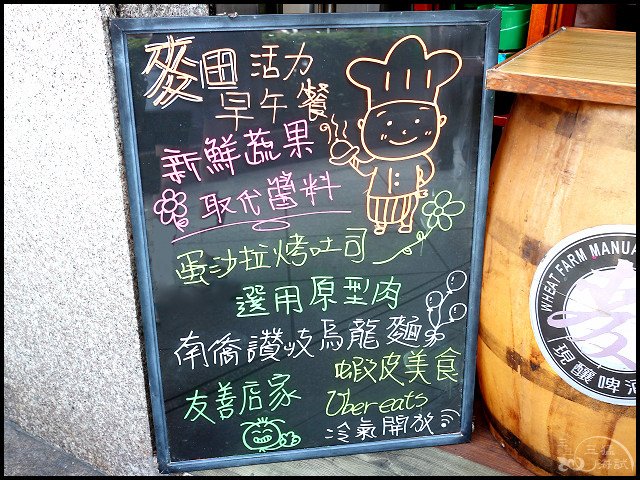 麥田 活力
早午餐
新鮮蔬果
取代醬料
蛋沙拉烤吐司
選用原型肉
南僑讚岐烏龍麵
蝦皮美食
友善店家
Uber eats
冷氣開放
WHEAT FARM MANUA
麥
現釀啤酒